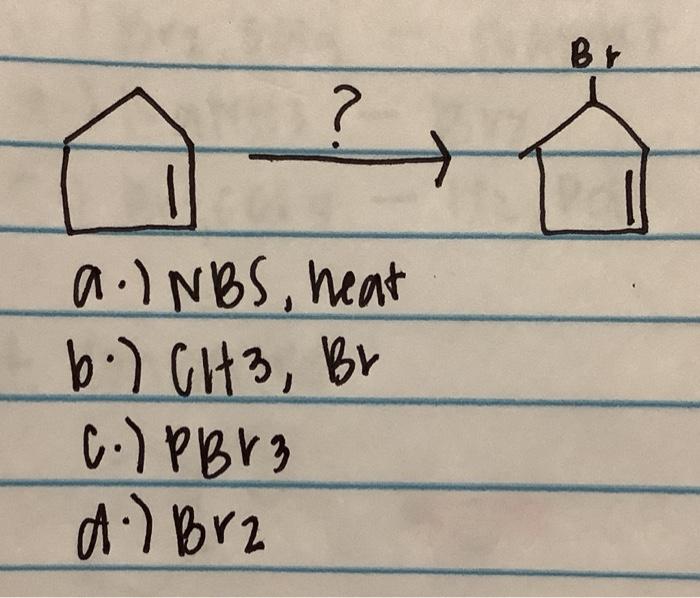 Br
?
a.) NBS, heat
b.) CH3, Br
c.) PBr3
d.) Br2